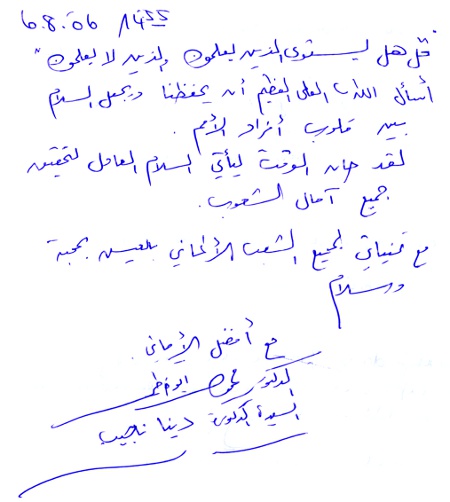 6.8.06 14:55
"قل هل يستوى الذين يعلمون والذين لا يعلمون"
أسأل الله العلى العظيم أن يحفظنا ويجعل السلام
بين قلوب أفراد الأمم.
لقد حان الوقت ليأتي السلام العادل لتحقيق
جميع آمال الشعوب.
مع تمنياتي لجميع الشعب الألماني بالعيش بمحبة
وسلام
مع أفضل الأماني.
الدكتور محمود
السيدة الدكتورة دينا نجيب